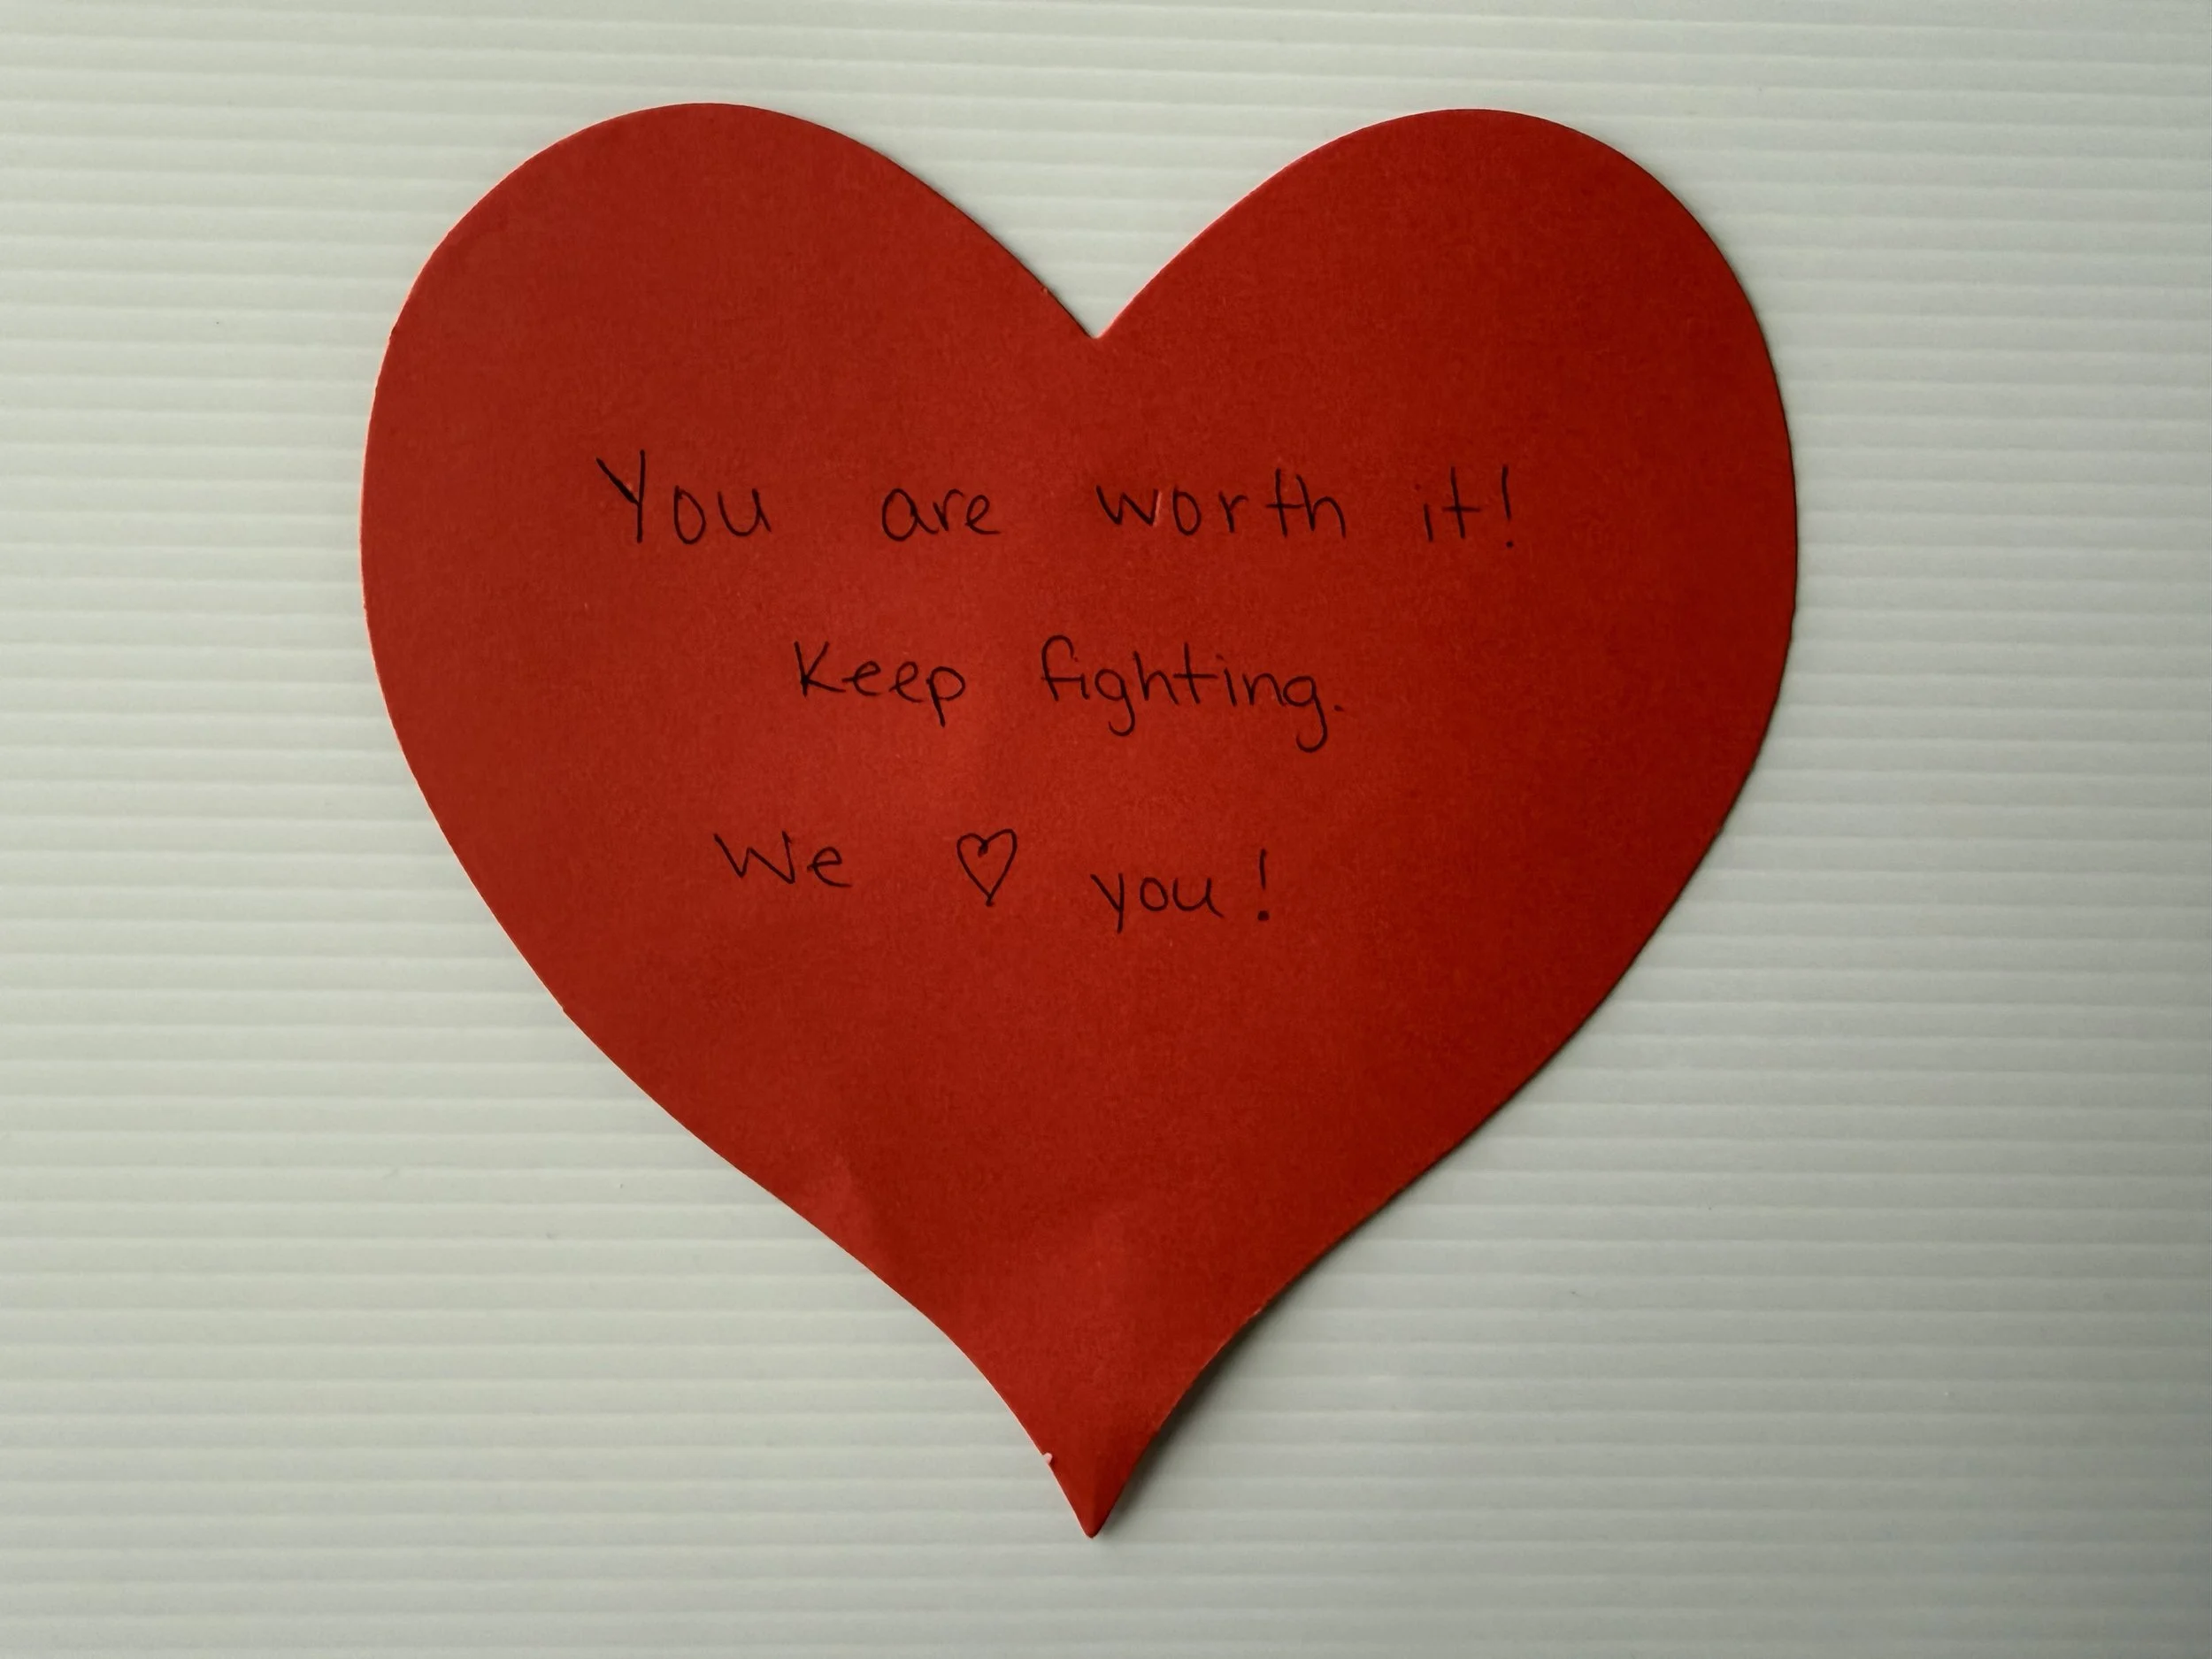 You are worth it!
Keep fighting.
We ♡ you!